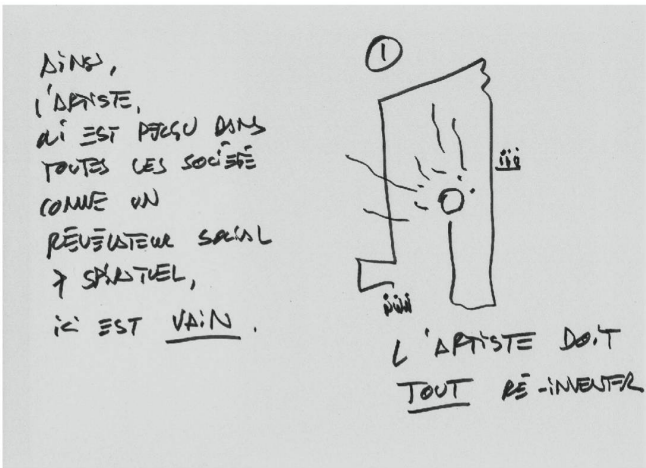 AINSI,
L'ARTISTE,
QUI EST PERÇU DANS
TOUTES LES SOCIÉTÉ
COMME UN
RÉVÉLATEUR SOCIAL
& SPIRITUEL,
ICI EST VAIN.
1
L'ARTISTE DOIT
TOUT RÉ-INVENTER